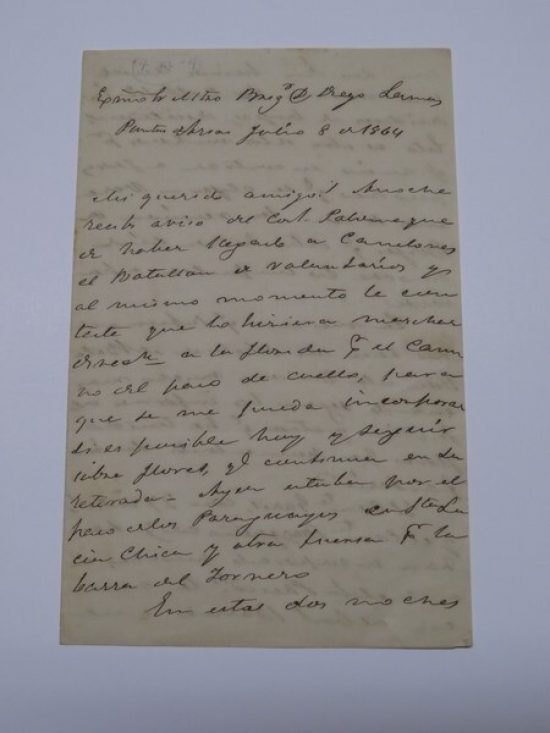 Exmo Sr Mtro Brigr D. Diego Lamas
Puntas de Arias Julio 8 de 1864
Mi querido amigo! Anoche
recibi aviso del Cor.l Palomeque
de haber llegado a Canelones
el Batallon de voluntarios y
al mismo momento le con
teste que lo hiciera marchar
a la Florida p.r el Cami
no del paso de Cuello, para
que se me pueda incorporar
si es posible hoy y seguir
sobre Flores, q.e continua en su
retirada - Ayer estaba por el
paso de los Paraguayos en Sta Lu
cia Chica y otra fuerza p.r la
barra del Tornero
En estas dos noches